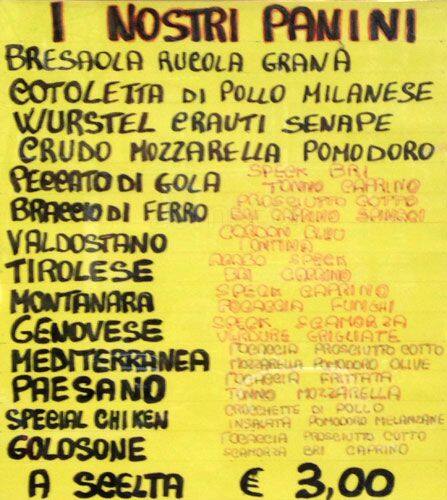 I NOSTRI PANINI
BRESAOLA RUCOLA GRANÀ
COTOLETTA DI POLLO MILANESE
WURSTEL CRAUTI SENAPE
CRUDO MOZZARELLA POMODORO
PECCATO DI GOLA SPECK BRI
TONNO CAPRINO
BRACCIO DI FERRO PROSCIUTTO COTTO
BRI CAPRINO SPINACI
VALDOSTANO CORDON BLEU
FONTINA
TIROLESE SPECK
BRI CAPRINO
MONTANARA SPECK CAPRINO
FOCACCIA FUNGHI
GENOVESE SPECK SCAMORZA
VERDURE GRIGLIATE
MEDITERRANEA FOCACCIA PROSCIUTTO COTTO
MOZZARELLA POMODORO OLIVE
PAESANO FOCACCIA FRITTATA
TONNO MOZZARELLA
SPECIAL CHIKEN CROCCHETTE DI POLLO
INSALATA POMODORO MELANZANE
GOLOSONE FOCACCIA PROSCIUTTO COTTO
SCAMORZA BRI CAPRINO
A SCELTA € 3,00